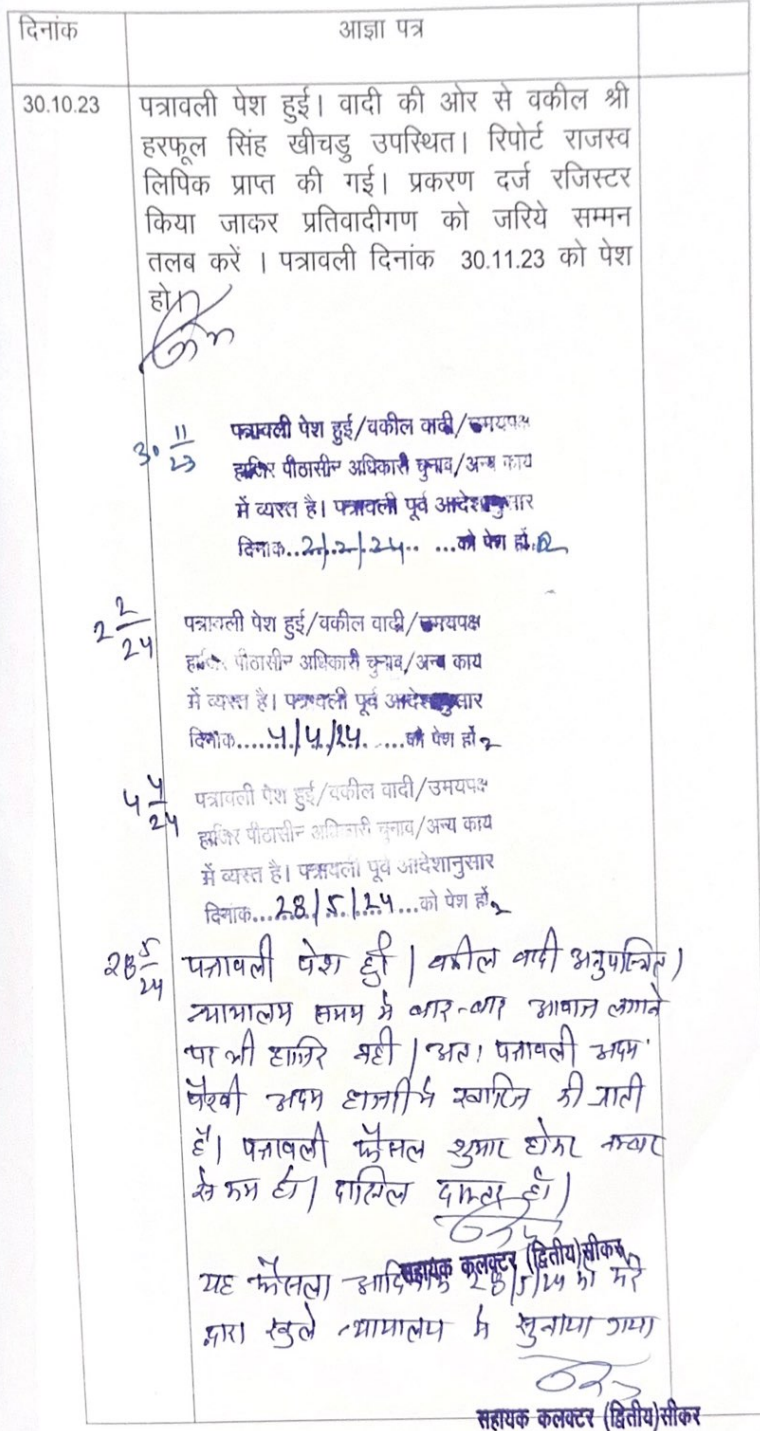 दिनांक
आज्ञा पत्र
30.10.23
पत्रावली पेश हुई। वादी की ओर से वकील श्री
हरफूल सिंह खीचडु उपस्थित। रिपोर्ट राजस्व
लिपिक प्राप्त की गई। प्रकरण दर्ज रजिस्टर
किया जाकर प्रतिवादीगण को जरिये सम्मन
तलब करें । पत्रावली दिनांक 30.11.23 को पेश
हो।
30 11/23
पत्रावली पेश हुई/वकील वादी/उमयपक्ष
हाजिर पीठासीन अधिकारी चुनाव/अन्य काय
में व्यस्त है। पत्रावली पूर्व आदेशानुसार
दिनांक..2/2/24.. ...को पेश हों
2 2/24
पत्रावली पेश हुई/वकील वादी/उमयपक्ष
हाजिर पीठासीन अधिकारी चुनाव/अन्य काय
में व्यस्त है। पत्रावली पूर्व आदेशानुसार
दिनांक......4/4/24. ....को पेश हों
4 4/24
पत्रावली पेश हुई/वकील वादी/उमयपक्ष
हाजिर पीठासीन अधिकारी चुनाव/अन्य काय
में व्यस्त है। पत्रावली पूर्व आदेशानुसार
दिनांक...28/5/24...को पेश हों
28 5/24
पत्रावली पेश हुई। वकील वादी अनुपस्थित।
न्यायालय समय में बार-बार आवाज लगाने
पर भी हाजिर नही। अतः पत्रावली अदम
पैरवी अदम हाजरी में खारिज की जाती
है। पत्रावली फैसल शुमार होकर नम्बर
से कम हो। दाखिल दफ्तर हो।
सहायक कलक्टर (द्वितीय)सीकर
यह फैसला आज दिनांक 28/5/24 को मेरे
द्वारा खुले न्यायालय में सुनाया गया
सहायक कलक्टर (द्वितीय)सीकर